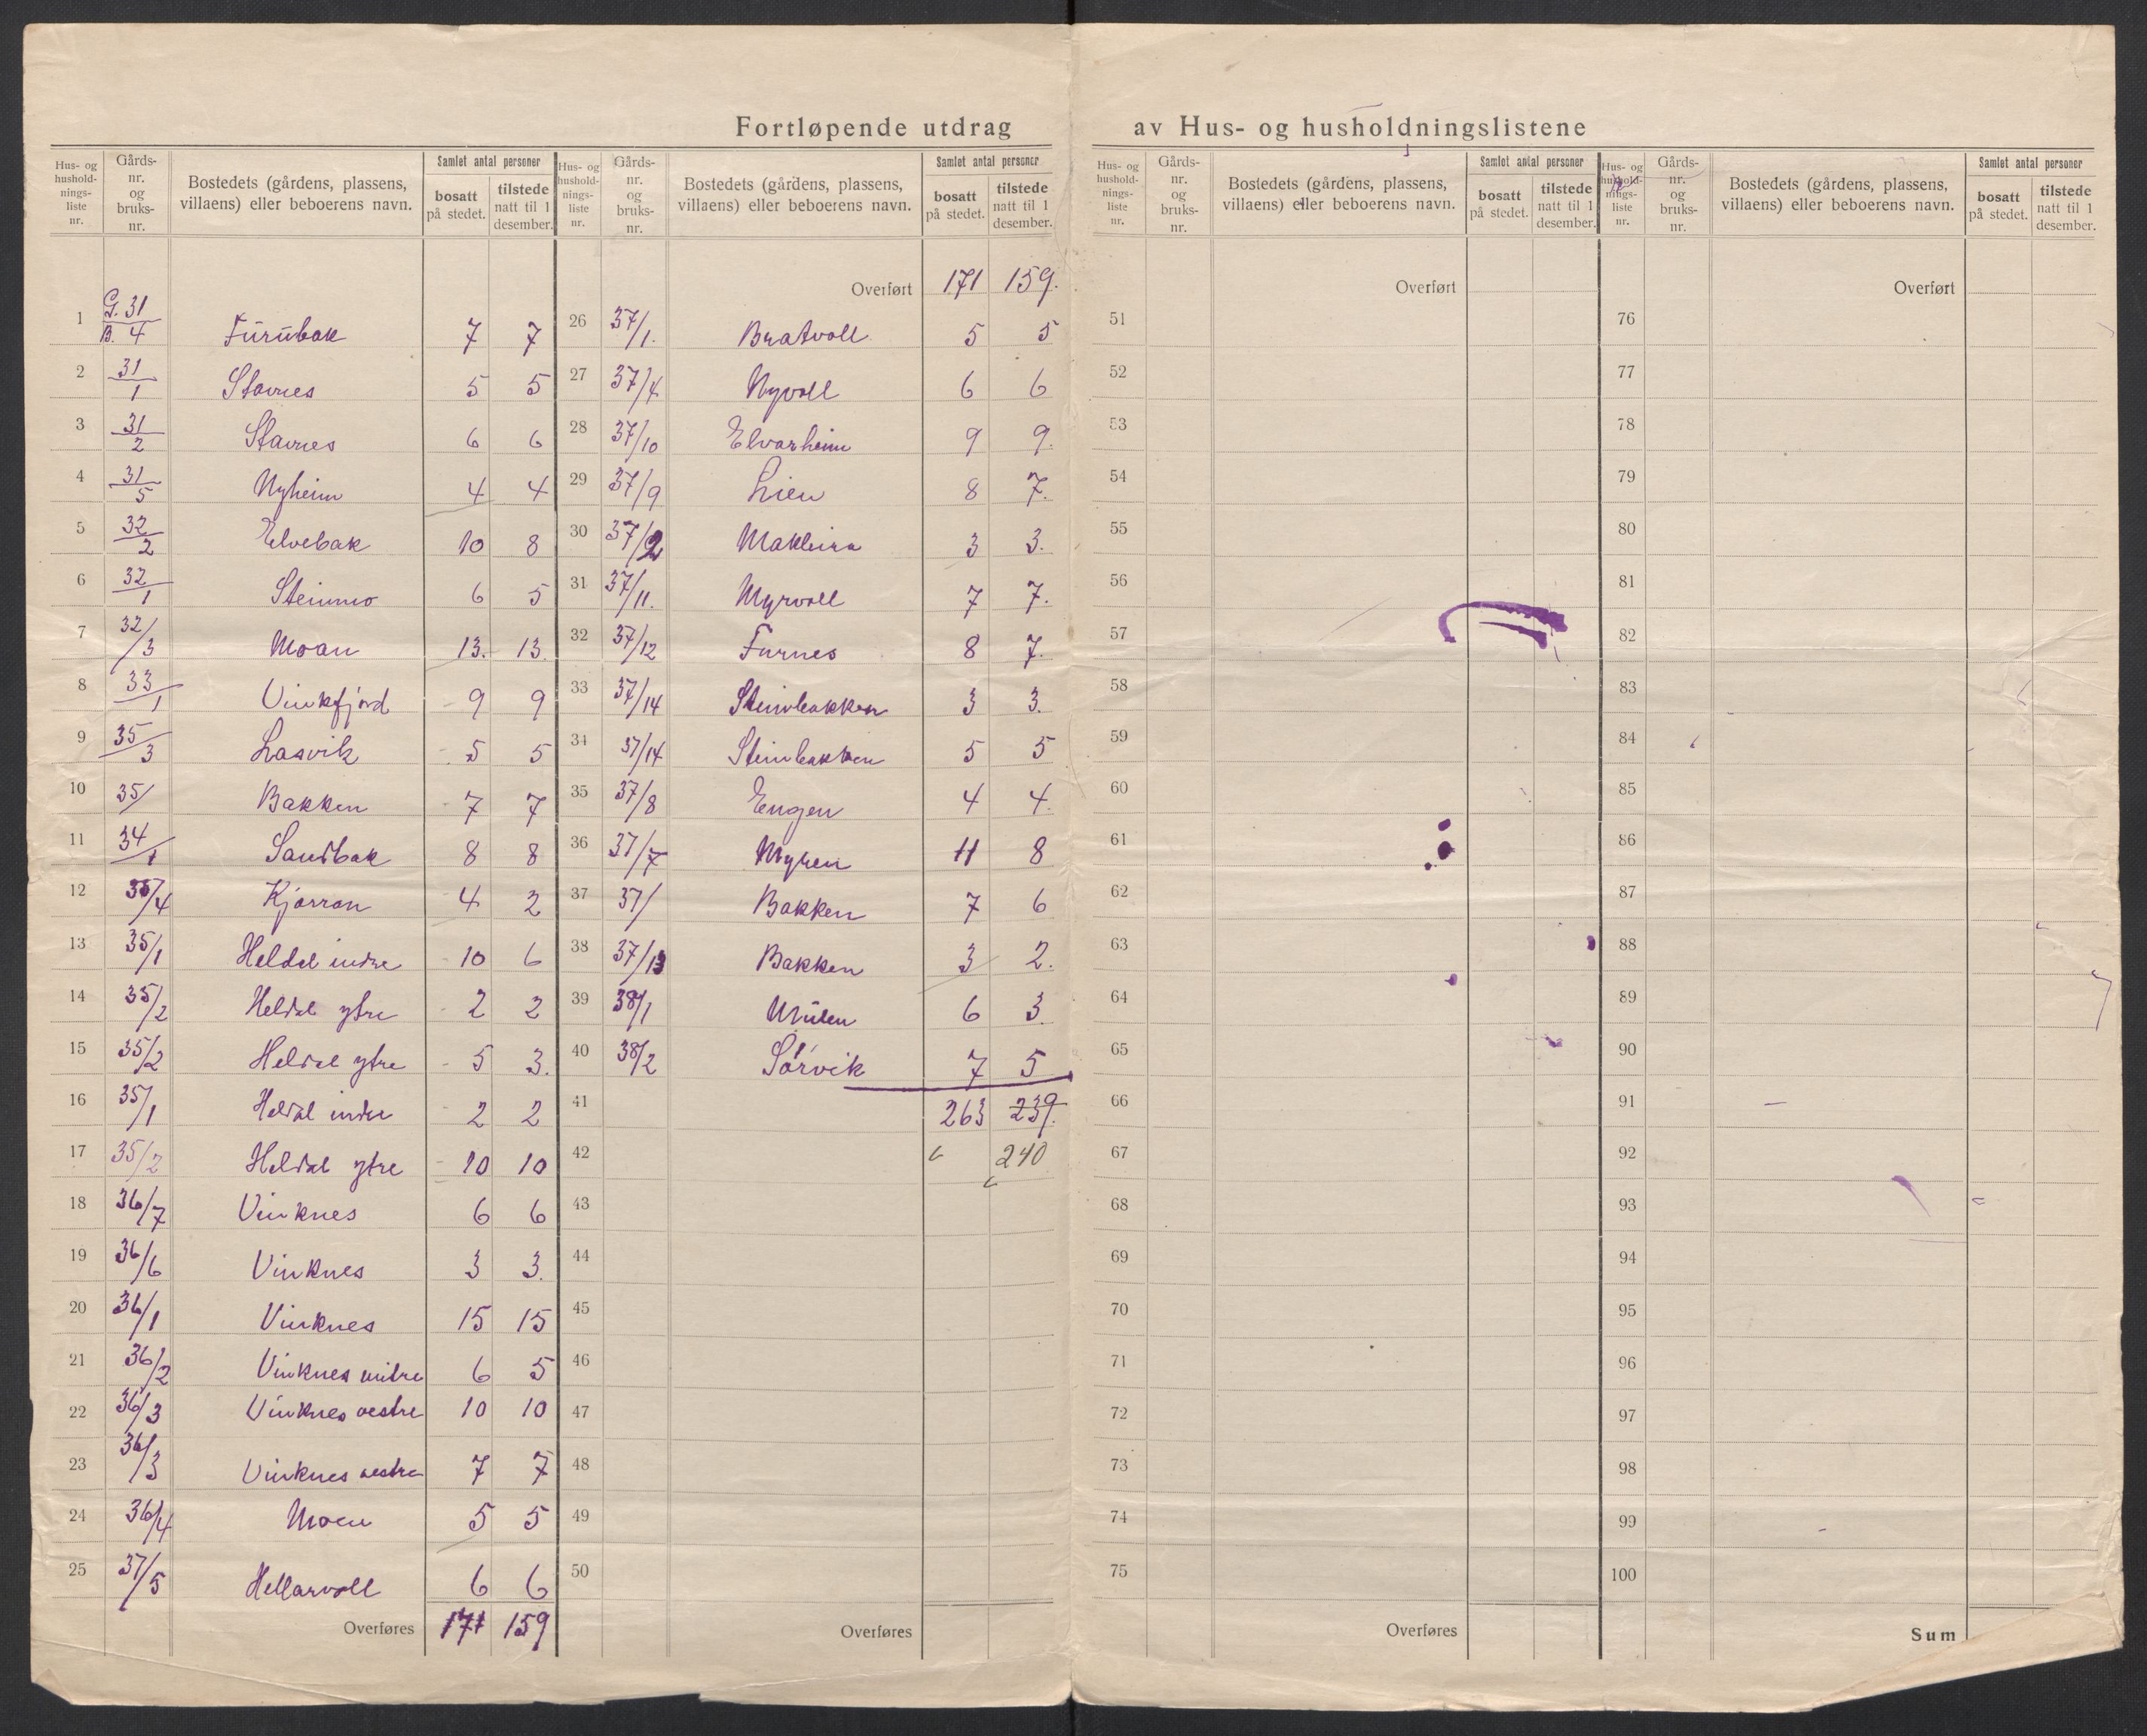 Fortløpende utdrag av Hus- og husholdningslistene
Hus- og hushold-nings-liste nr. | Gårds-nr. og bruks-nr. | Bostedets (gårdens, plassens, villaens) eller beboerens navn. | Samlet antal personer | bosatt på stedet. | tilstede natt til 1 desember.
1 G. 31 B. 4 Furubak 7 7
2 31/1 Stavnes 5 5
3 31/2 Stavnes 6 6
4 31/5 Nyheim 4 4
5 32/2 Elvebak 10 8
6 32/1 Steinmo 6 5
7 32/3 Moan 13. 13.
8 33/1 Vinkfjord 9 9
9 35/3 Lasvik 5 5
10 35/ Bakken 7 7
11 34/1 Sandbak 8 8
12 35/4 Kjørran 4 2
13 35/1 Heldal indre 10 6
14 35/2 Heldal ytre 2 2
15 35/2 Heldal ytre 5 3.
16 35/1 Heldal indre 2 2
17 35/2 Heldal ytre 10 10
18 36/7 Vinknes 6 6
19 36/6 Vinknes 3 3.
20 36/1 Vinknes 15 15
21 36/2 Vinknes 6 5
22 36/3 Vinknes vestre 10 10
23 36/3 Vinknes vestre 7 7
24 36/4 Moen 5 5
25 37/5 Hellarvoll 6 6
Overføres 171 159
Hus- og hushold-nings-liste nr. | Gårds-nr. og bruks-nr. | Bostedets (gårdens, plassens, villaens) eller beboerens navn. | Samlet antal personer | bosatt på stedet. | tilstede natt til 1 desember.
Overført 171 159.
26 37/1. Bratvoll 5 5
27 37/4 Nyvoll 6 6
28 37/10 Elvarheim 9 9.
29 37/9 Lien 8 7.
30 37/2 Makleira 3 3.
31 37/11. Myrvoll 7 7.
32 37/12 Furnes 8 7.
33 37/14 Steinbakken 3 3.
34 37/14 Steinbakken 5 5
35 37/8 Engen 4 4.
36 37/7 Myren 11 8
37 37/ Bakken 7 6
38 37/13 Bakken 3 2.
39 38/1 Mulen 6 3.
40 38/2 Sørvik 7 5
41 263 239.
42 240
43
44
45
46
47
48
49
50
Overføres
Hus- og hushold-nings-liste nr. | Gårds-nr. og bruks-nr. | Bostedets (gårdens, plassens, villaens) eller beboerens navn. | Samlet antal personer | bosatt på stedet. | tilstede natt til 1 desember.
Overført
51
52
53
54
55
56
57
58
59
60
61
62
63
64
65
66
67
68
69
70
71
72
73
74
75
Overføres
Hus- og hushold-nings-liste nr. | Gårds-nr. og bruks-nr. | Bostedets (gårdens, plassens, villaens) eller beboerens navn. | Samlet antal personer | bosatt på stedet. | tilstede natt til 1 desember.
Overført
76
77
78
79
80
81
82
83
84
85
86
87
88
89
90
91
92
93
94
95
96
97
98
99
100
Sum